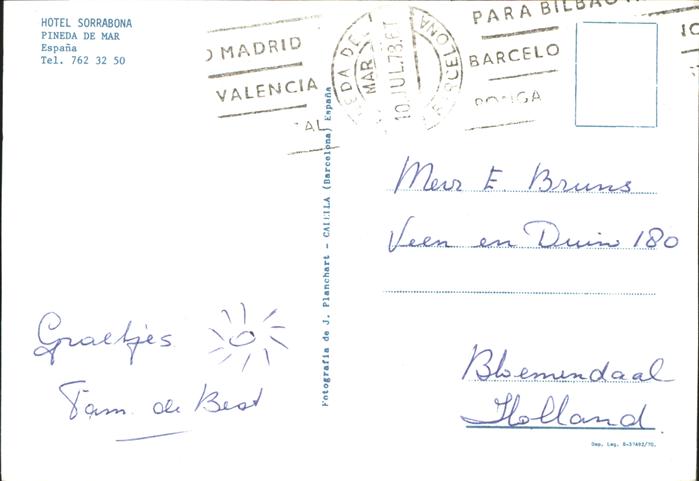 HOTEL SORRABONA
PINEDA DE MAR
España
Tel. 762 32 50
O MADRID
VALENCIA
PINEDA DE MAR
10 JUL 78
BARCELONA
PARA BILBAO
BARCELO
Fotografía de J. Planchart - CALELLA (Barcelona) España
Mevr E. Bruns
Veen en Duin 180
Bloemendaal
Holland.
Groetjes
Fam. de Best
Dep. Leg. B-37492/70.